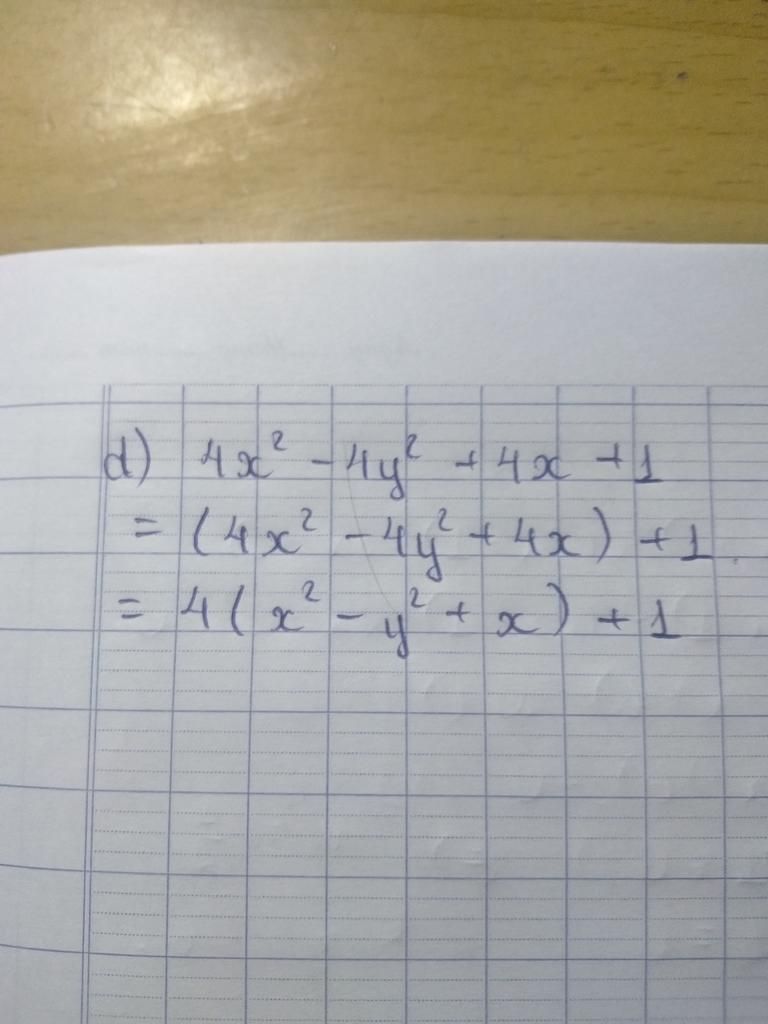 d) 4x² - 4y² + 4x + 1
= (4x² - 4y² + 4x) + 1
= 4(x² - y² + x) + 1